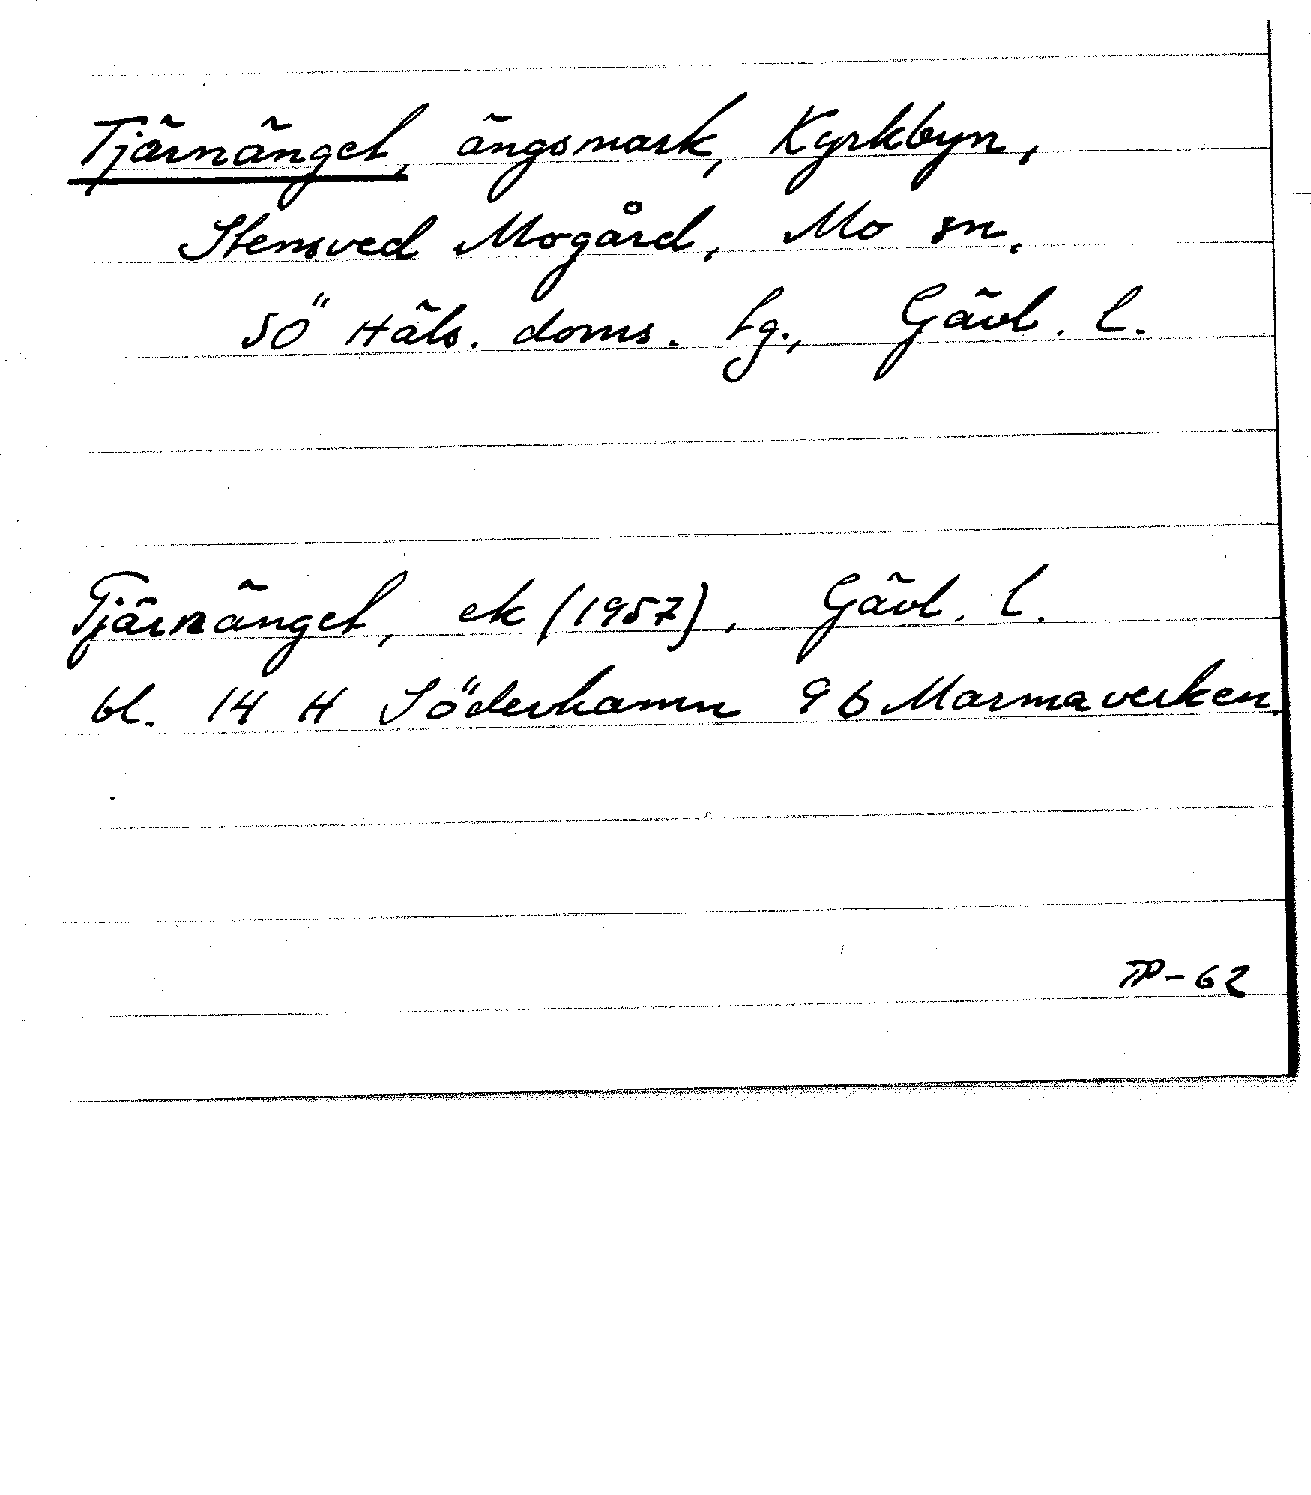 Tjärnänget, ängsmark, Kyrkbyn,
Stensved Mogård, Mo sn.
SÖ Häls. doms. tg., Gävl. l.
Tjärnänget, ek (1957), Gävl. l.
bl. 14 H Söderhamn 9 b Marmaverken.
TP-62